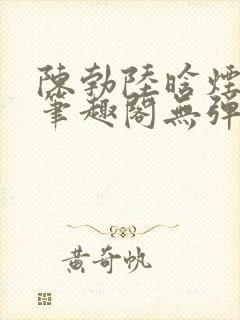 陳勃陸晗煙
筆趣閣無彈
黃奇帆